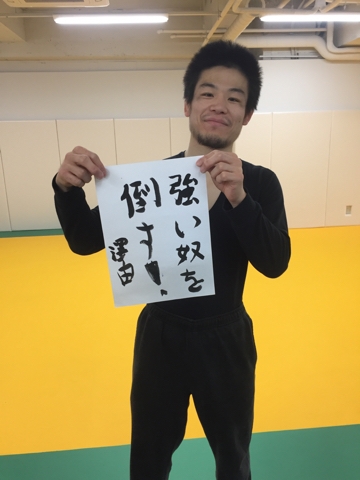 強い奴を
倒す!
澤田